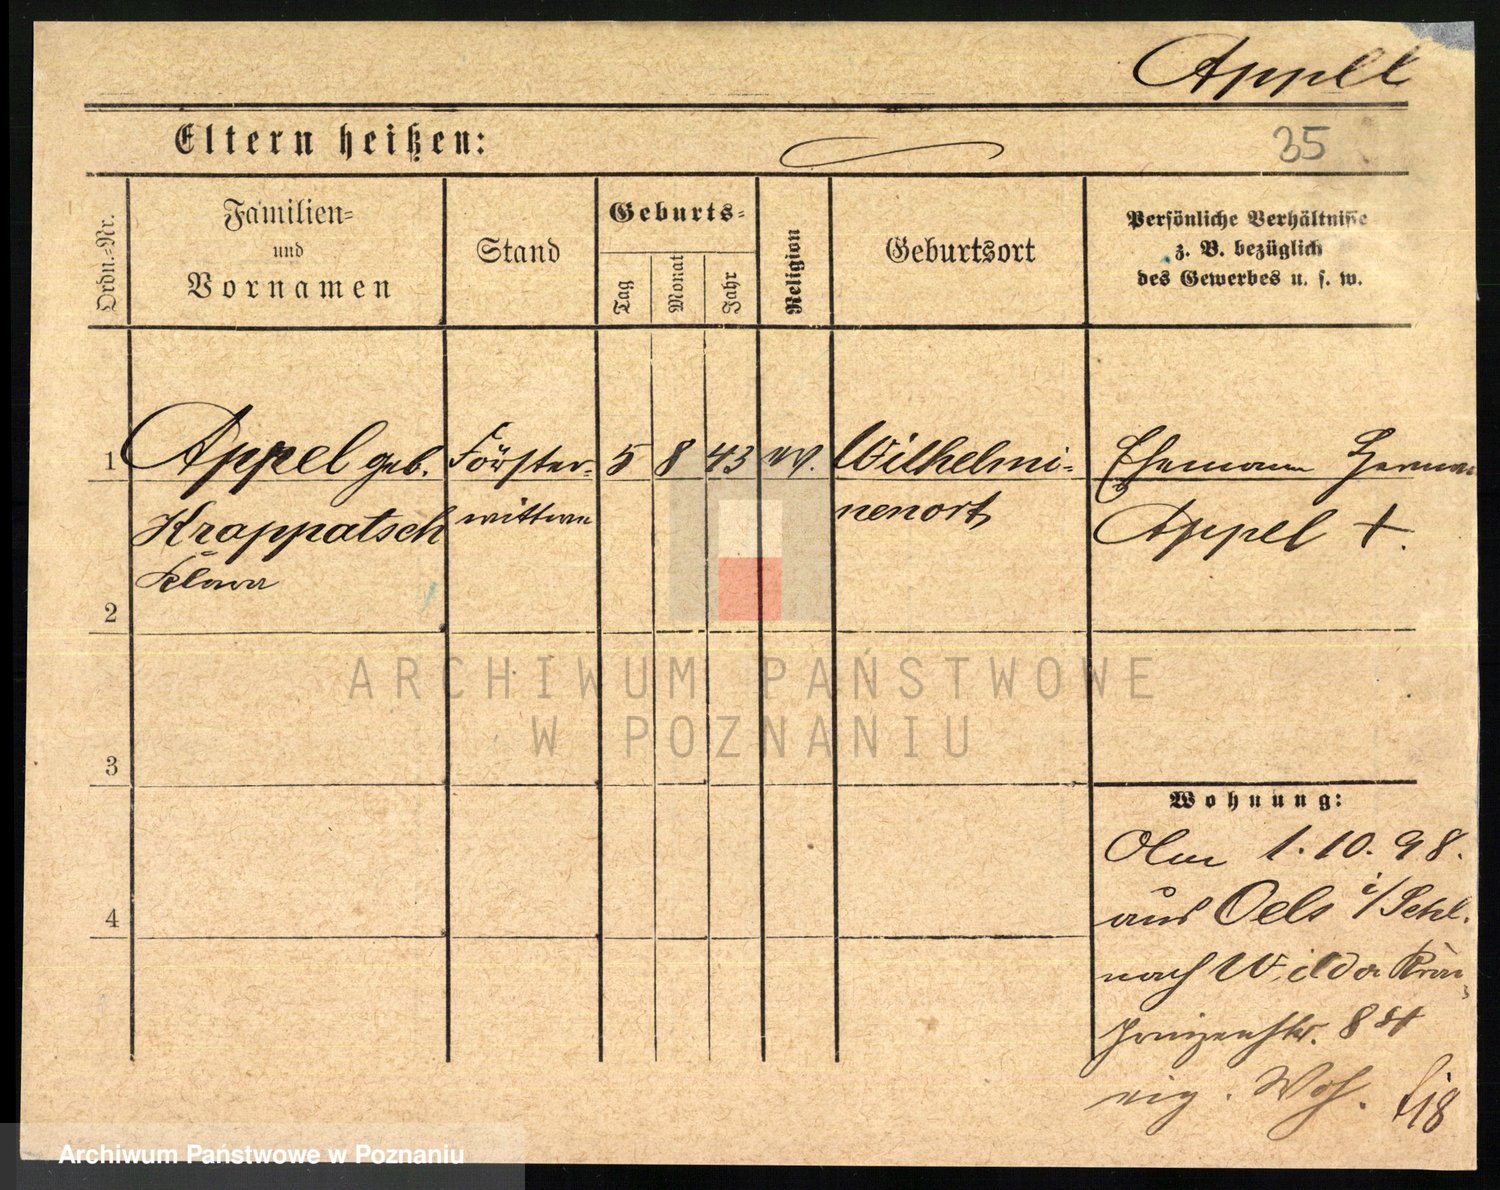 Appel
Eltern heißen:
35
Ordn.-Nr.
Familien-
und
Vornamen
Stand
Geburts-
Tag
Monat
Jahr
Religion
Geburtsort
Persönliche Verhältnisse
z. B. bezüglich
des Gewerbes u. s. w.
1
Appel geb.
Krappatsch
Klara
Förster-
wittwe
5
8
43
ev.
Wilhelmi-
nenort
Ehemann Herman
Appel †.
2
3
4
Wohnung:
Am 1.10.98.
aus Oels i/Schl.
nach Wilda Kron
prinzenstr. 84
eig. Woh.
ARCHIWUM PAŃSTWOWE
W POZNANIU
Archiwum Państwowe w Poznaniu